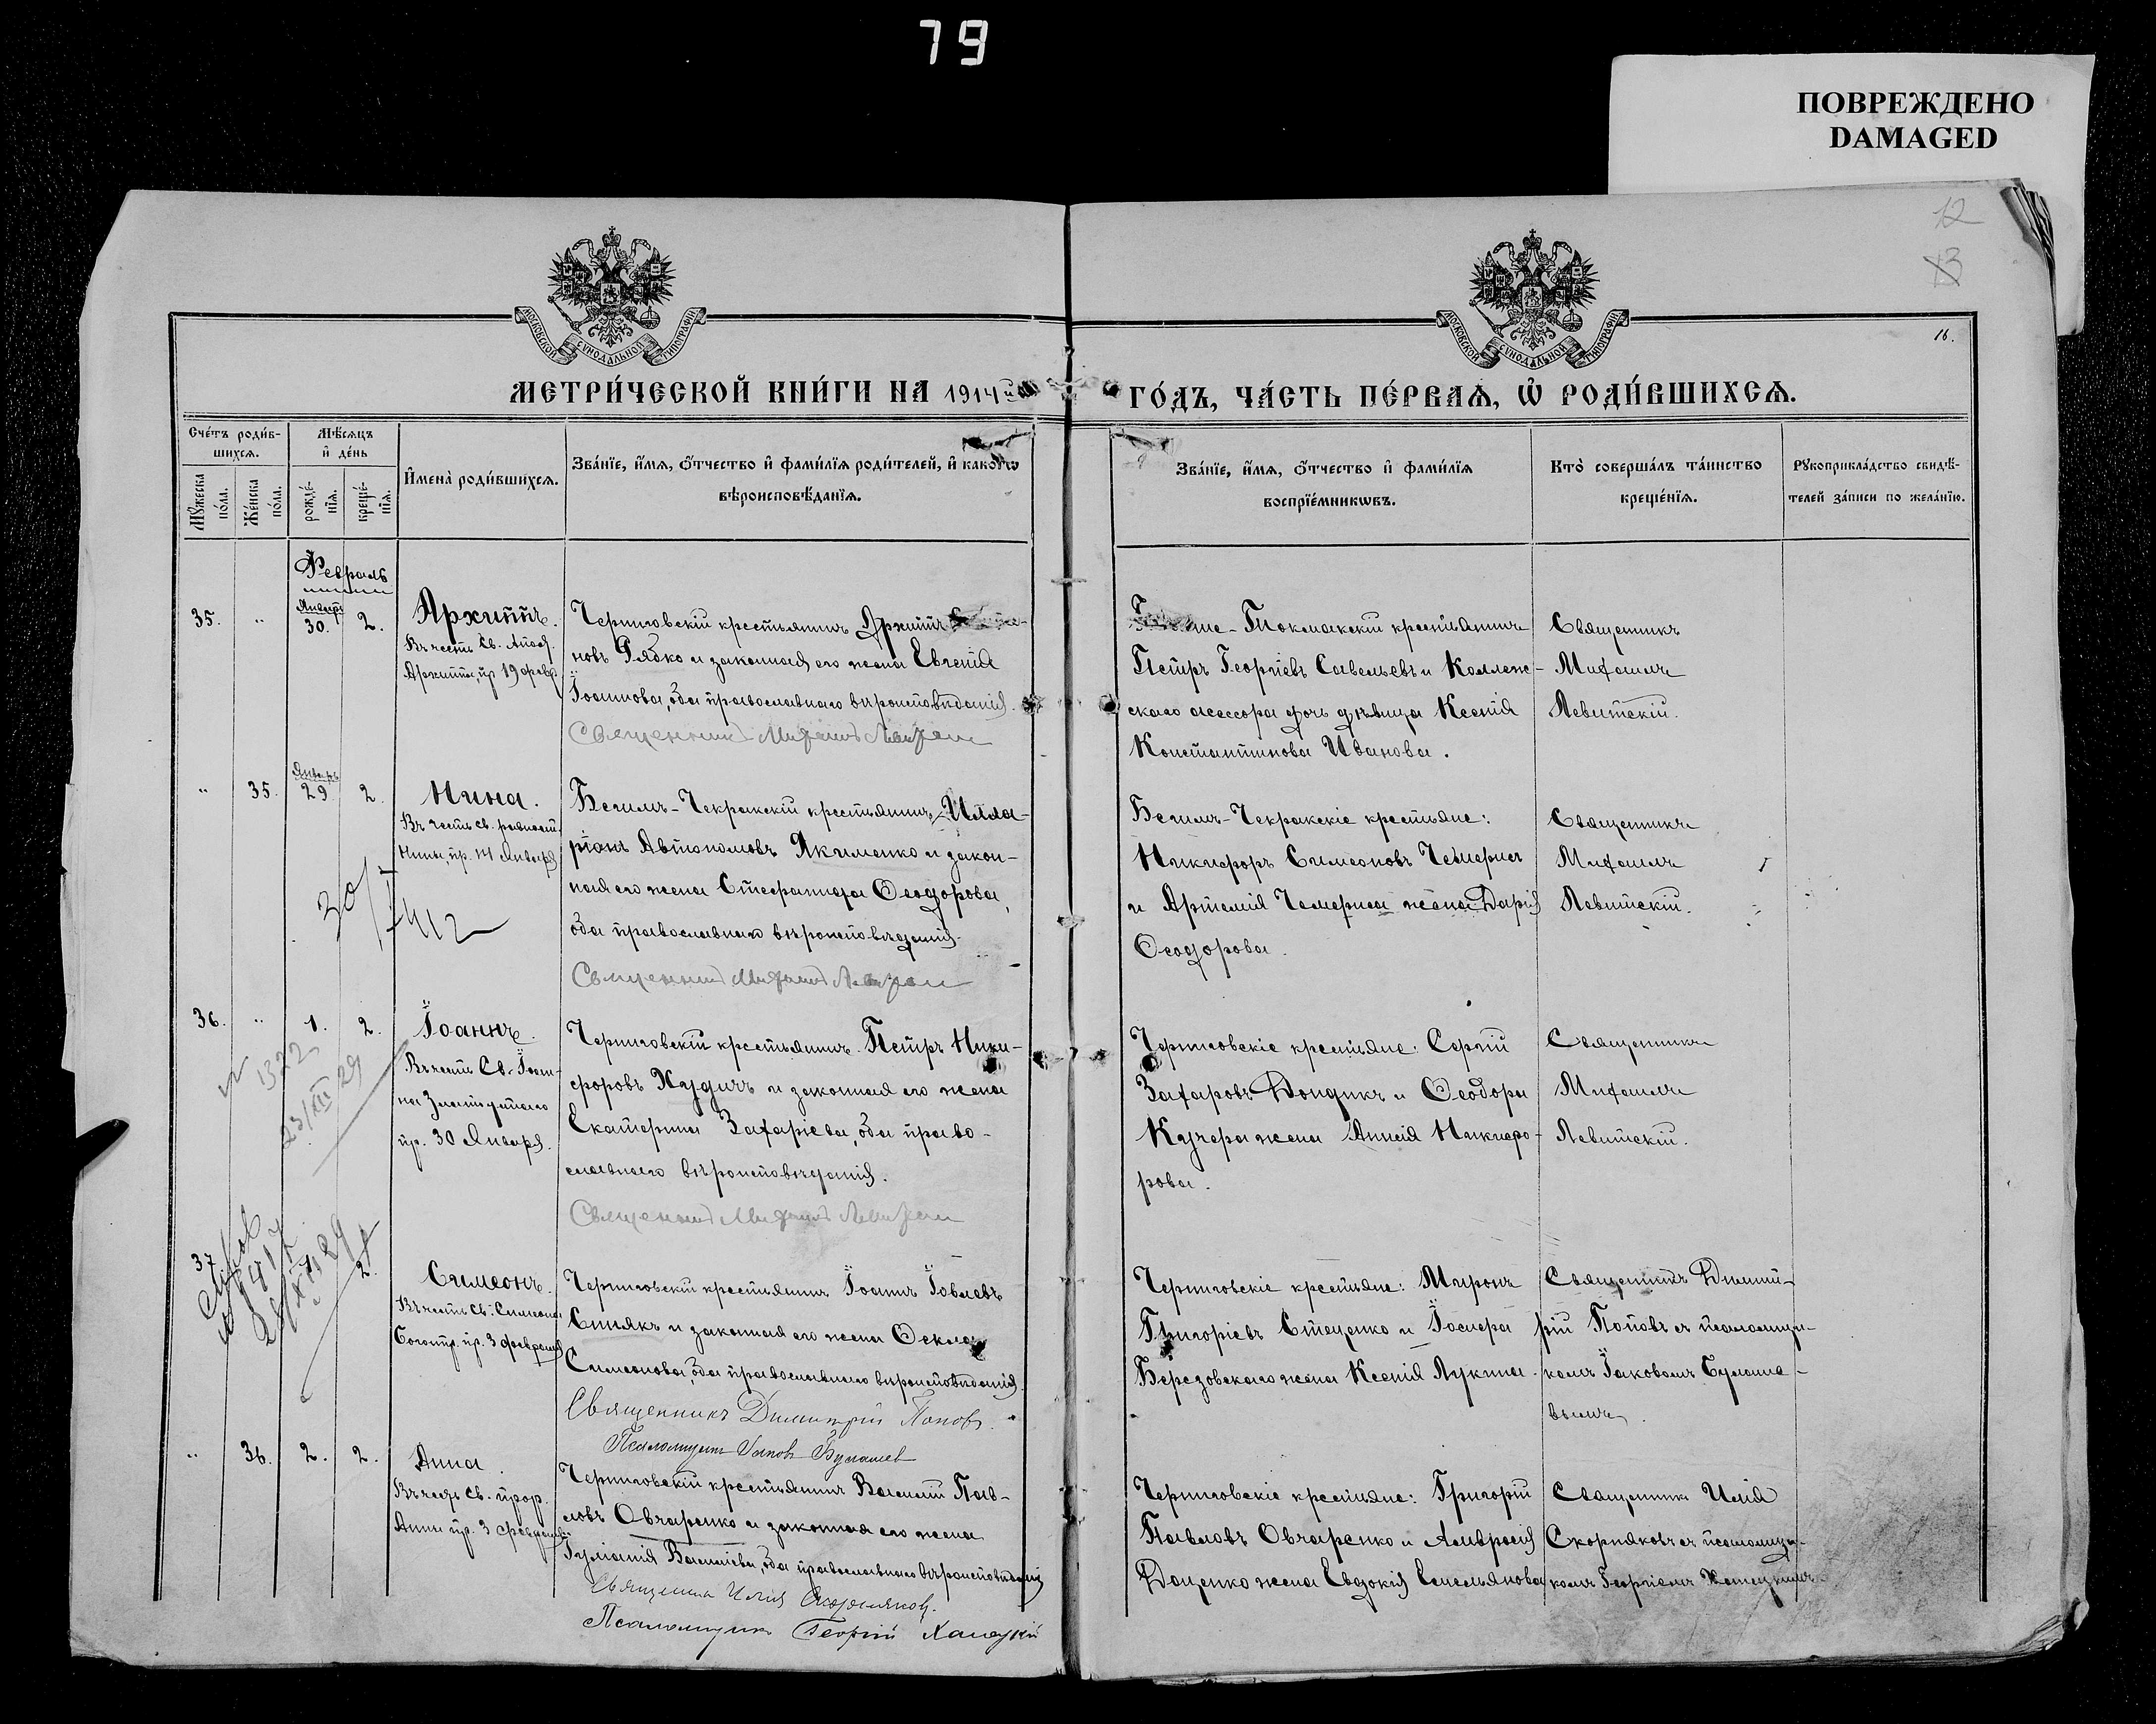 79
ПОВРЕЖДЕНО
DAMAGED
12
13
16.
МОСКОВСКОЙ СУНОДАЛЬНОЙ ТИПОГРАФІИ
МОСКОВСКОЙ СУНОДАЛЬНОЙ ТИПОГРАФІИ
МЕТРИ́ЧЕСКОЙ КНИ́ГИ НА 1914й
ГО́ДЪ, ЧА́СТЬ ПЕ́РВАѦ, Ѡ҆ РОДИ́ВШИХСѦ.
Сче́тъ роди́в-
шихсѧ.
Мꙋ́жеска по́ла.
Же́нска по́ла.
Мѣ́сѧцъ
и҆ де́нь
рожде́-нїѧ.
креще́-нїѧ.
И҆мена̀ роди́вшихсѧ.
Зва́нїе, и҆́мѧ, о҆́тчество и҆ фами́лїѧ роди́телей, и҆ како́гѡ
вѣроисповѣ́данїѧ.
Зва́нїе, и҆́мѧ, о҆́тчество и҆ фами́лїѧ
воспрїе́мникѡвъ.
Кто̀ соверша́лъ та́инство
креще́нїѧ.
Рꙋкоприкла́дство свидѣ́-
телей за́писи по жела́нїю.
Февраль
35.
"
Январь
30.
2.
Архиппъ.
Въ честь Св. Апост.
Архиппа, пр. 19 февр.
Черниговскій крестьянинъ Архиппъ
новъ Рябко и законная его жена Евгенія
Іоаннова, оба православнаго вѣроисповѣданія.
Священникъ Михаилъ Левитскій
Токмакскій крестьянинъ
Петръ Георгіевъ Савельевъ и Коллеж-
скаго асессора дочь дѣвица Ксенія
Константинова Иванова.
Священникъ
Михаилъ
Левитскій.
"
35.
Январь
29
2.
Нина.
Въ честь св. равноап.
Нины, пр. 14 Января
30/I 412
Бегимъ-Чекракскій крестьянинъ Илла-
ріонъ Автономовъ Якименко и закон-
ная его жена Стефанида Ѳеодорова,
оба православнаго вѣроисповѣданія.
Священникъ Михаилъ Левитскій
Бегимъ-Чекракскіе крестьяне:
Никифоръ Симеоновъ Чемерисъ
и Артемія Чемериса жена Дарія
Ѳеодорова.
Священникъ
Михаилъ
Левитскій.
36.
"
1.
2.
Іоаннъ.
Въ честь Св. Іоан-
на Златоустаго
пр. 30 Января.
№ 1322
23/XII 29
Черниговскій крестьянинъ Петръ Ники-
форовъ Худичъ и законная его жена
Екатерина Захаріева, оба право-
славнаго вѣроисповѣданія.
Священникъ Михаилъ Левитскій
Черниговскіе крестьяне: Сергій
Захаровъ Дондикъ и Ѳеодора
Кучера жена Анисія Никифо-
рова.
Священникъ
Михаилъ
Левитскій.
37.
2.
Симеонъ.
Въ честь св. Симеона
Богопр. пр. 3 февраля
Черниговскій крестьянинъ Іоаннъ Іовлевъ
Спиякъ и законная его жена Ѳекла
Симеонова, оба православнаго вѣроисповѣданія.
Священникъ Димитрій Поповъ.
Псаломщикъ Іаковъ Булашев
Черниговскіе крестьяне: Миронъ
Григоріевъ Стеценко и Іосифа
Березовскаго жена Ксенія Лукина.
Священникъ Димит-
рій Поповъ съ псаломщи-
комъ Іаковомъ Булаше-
вымъ.
"
36.
2.
2.
Анна.
Въ честь св. прор.
Анны пр. 3 февраля
Черниговскій крестьянинъ Василій Пав-
ловъ Овчаренко и законная его жена
Іуліанія Василіева, оба православнаго вѣроисповѣданія
Священникъ Илія Скорняковъ.
Псаломщикъ Георгій Ханецкій
Черниговскіе крестьяне: Григорій
Павловъ Овчаренко и Амвросія
Доценко жена Евдокія Емельянова
Священникъ Илія
Скорняковъ съ псаломщи-
комъ Георгіемъ Ханецкимъ